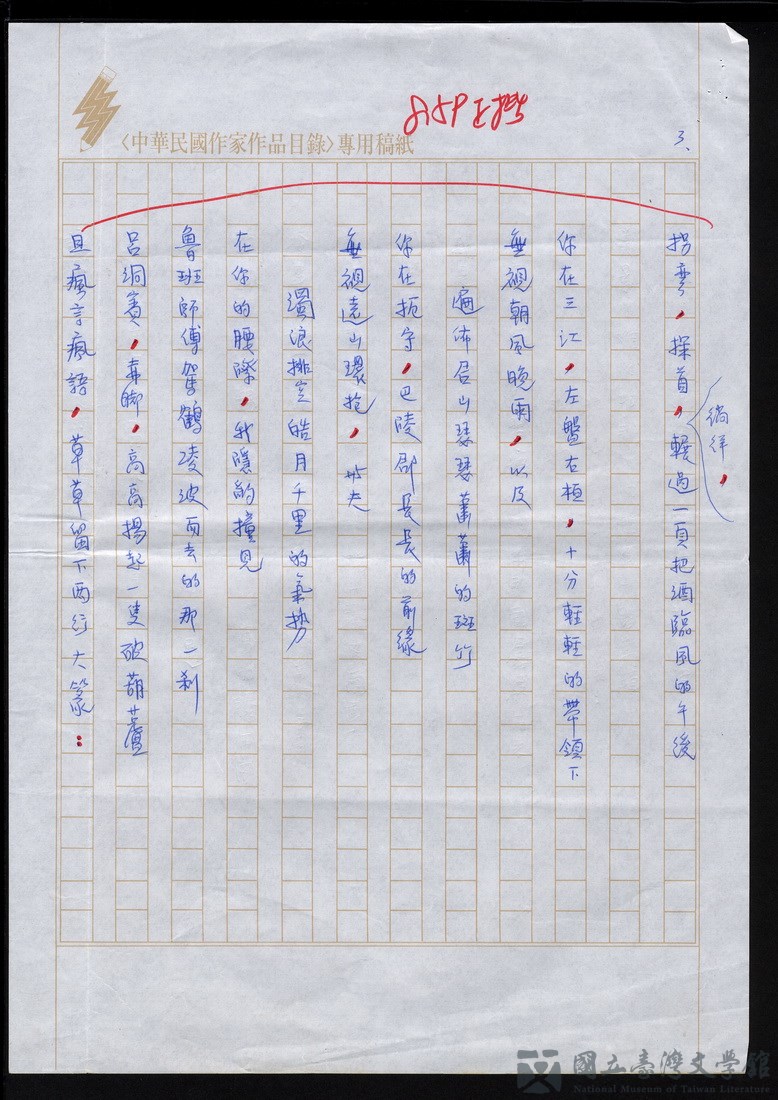 〈中華民國作家作品目錄〉專用稿紙
3、
拐彎，探首，徜徉，輾過一頁把酒臨風的午後
你在三江，左盤右桓，十分輕輕的帶領下
無視朝風晚雨，以及
遍佈君山瑟瑟蕭蕭的斑竹
你在扼守，巴陵郡長長的前緣
無視遠山環抱，
濁浪排空皓月千里的氣勢
在你的腰際，我隱約撞見
魯班師傅駕鶴凌波而去的那一剎
呂洞賓，赤腳，高高揚起一隻破葫蘆
且瘋言瘋語，草草留下兩行大篆：
國立臺灣文學館
National Museum of Taiwan Literature